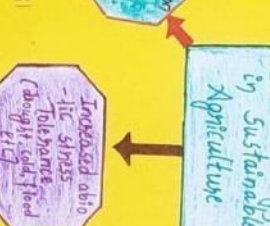 in Sustainable
Agriculture
Increased abio
-tic stress
Tolerance
(drought, cold, flood
etc)